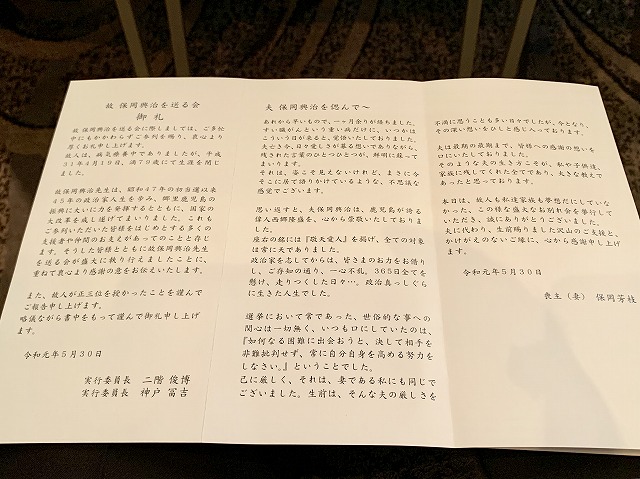 故 保岡興治を送る会
御 礼
故 保岡興治を送る会に際しましては、ご多忙
中にもかかわらずご参列を賜り、衷心より
厚くお礼申し上げます。
故人は、病気療養中でありましたが、平成
31年4月19日、満79歳にて生涯を閉じ
ました。
故保岡興治先生は、昭和47年の初当選以来
45年の政治家人生を歩み、郷里鹿児島の
振興に大いに力を発揮するとともに、国家の
大改革を成し遂げてまいりました。これも
ご参列いただいた皆様をはじめとする多くの
支援者や仲間のお支えがあってのことと存じ
ます。そうした皆様とともに故保岡興治先生
を送る会が盛大に執り行えましたことに、
重ねて衷心より感謝の意をお伝えいたします。
また、故人が正三位を授かったことを謹んで
ご報告申し上げます。
略儀ながら書中をもって謹んで御礼申し上げ
ます。
令和元年5月30日
実行委員長 二階 俊博
実行委員長 神戸 冨吉
夫 保岡興治を偲んで～
あれから早いもので、一ヶ月余りが勝ちました。
すい臓がんという重い病だけに、いつかは
こういう日が来ると、覚悟いたしておりました。
夫亡き今、日々愛しさが募る想いでありながら、
残された言葉のひとつひとつが、鮮明に蘇って
まいります。
それは、姿こそ見えないけれど、まさに今
そこに居て語りかけているような、不思議な
感覚でございます。
思い返すと、夫保岡興治は、鹿児島が誇る
偉人西郷隆盛を、心から崇敬いたしておりまし
た。
座右の銘には『敬天愛人』を掲げ、全ての対象
は常に天でありました。
政治家を志してからは、皆さまのお力をお借り
し、ご存知の通り、一心不乱、365日全てを
懸け、走りつくした日々…。政治真っしぐら
に生きた人生でした。
選挙において常であった、世俗的な事への
関心は一切無く、いつも口にしていたのは、
『如何なる困難に出会おうと、決して相手を
非難批判せず、常に自分自身を高める努力を
しなさい。』ということでした。
己に厳しく、それは、妻である私にも同じで
ございました。生前は、そんな夫の厳しさを
不満に思うことも多い日々でしたが、今となり、
その深い想いをひしと感じ入っております。
夫は最期の最期まで、皆様への感謝の想いを
口にいたしておりました。
そのような夫の生き方こそが、私や子供達、
家族に残してくれた全てであり、大きな教えで
あったと思っております。
本日は、故人も私達家族も夢想だにしていな
かった、この様な盛大なお別れ会を挙行して
いただき、誠にありがとうございました。
夫に代わり、生前賜りました沢山のご支援と、
かけがえのないご縁に、心から感謝申し上げ
ます。
令和元年5月30日
喪主（妻） 保岡芳枝